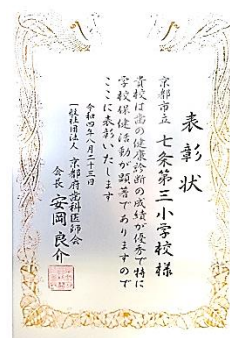 表彰状
京都市立 七条第三小学校様
貴校は歯の健康診断の成績が優秀で特に
学校保健活動が顕著でありますので
ここに表彰いたします
令和四年八月二十三日
一般社団法人 京都府歯科医師会
会長 安岡良介